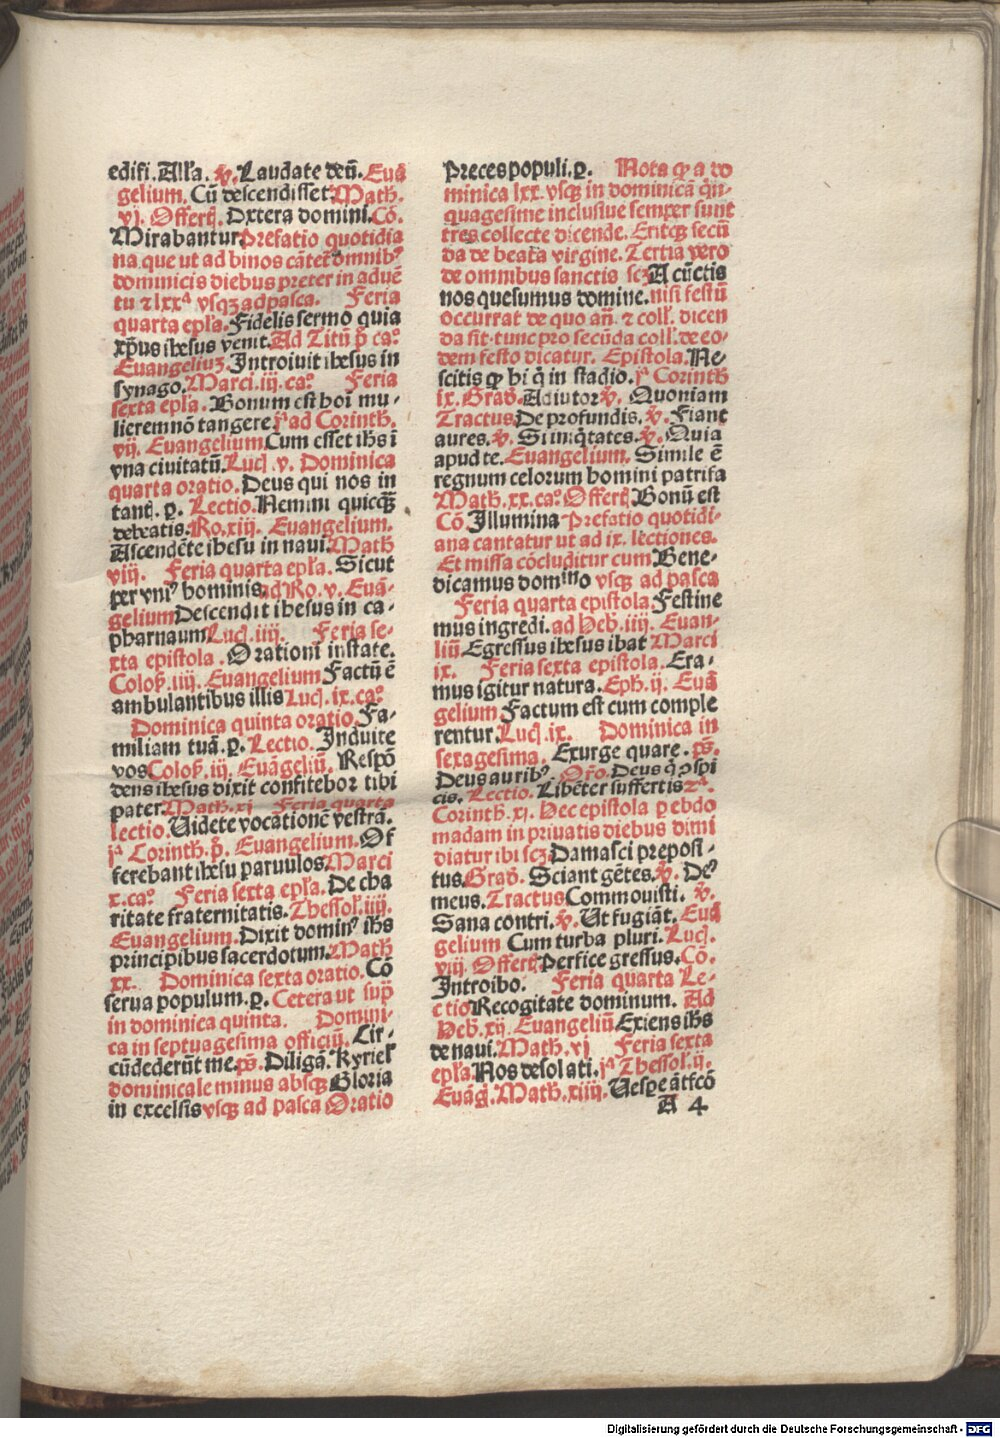 edifi. Alľa. ꝟ. Laudate deū. Euā
gelium. Cū descendisset Math.
vj. Offerť. Dxtera domini. Cō.
Mirabantur. Prefatio quotidia
na. que ut ad binos cātet̄ omnibꝰ
dominicis diebus preter in aduē
tu ⁊ lxxᵃ vsqꝫ ad pasca. Feria
quarta epľa. Fidelis sermo quia
xp̄us ihesus venit. Ad Titū p̄ caº
Euangeliuꝫ. Introiuit ihesus in
synago. Marci. iij. caº Feria
sexta epľa. Bonum est hoī mu-
lierem nō tangere jᵃ ad Corinth.
vij. Euangelium Cum esset ihs ī
vna ciuitatū. Luč. v. Dominica
quarta oratio. Deus qui nos in
tantį. ꝑ. Lectio. Nemini quicqꝫ
debeatis. Ro. xiij. Euangelium.
Ascendēte ihesu in naui. Math
viij. Feria quarta epľa. Sicut
per vniꝰ hominis. ad Ro. v. Euā-
gelium Descendit ihesus in ca-
pharnaum Luč. iiij. Feria se-
xta epistola. Orationi instate.
Coloß. iiij. Euangelium Factū ē
ambulantibus illis Luč. ix. caº
Dominica quinta oratio. Fa-
miliam tuā. ꝑ. Lectio. Induite
vos Coloß. iij. Euāgeliū. Respō
dens ihesus dixit confitebor tibi
pater. Math. xj Feria quarta
lectio. Uidete vocationē vestrā.
jᵃ Corinth. p̄. Euangelium. Of
ferebant ihesu paruulos. Marci
x. caº. Feria sexta epľa. De cha
ritate fraternitatis. Thessoľ. iiij.
Euangelium. Dixit dominꝰ ihs
principibus sacerdotum. Math
xx. Dominica sexta oratio. Cō
serua populum. ꝑ. Cetera ut sup̄
in dominica quinta. Domini-
ca in septuagesima officiū. Cir-
cūdederūt me. ps̄. Diligā. Kyrieľ
dominicale minus absqꝫ Gloria
in excelsis vsqꝫ ad pasca Oratio
Preces populi. ꝑ. Nota ꝙ a do
minica lxx. vsqꝫ in dominicā qn̄-
quagesime inclusiue semper sunt
tres collecte dicende. Eritqꝫ secū
da de beata virgine. Tertia vero
de omnibus sanctis scꝫ A cūctis
nos quesumus domine. nisi festū
occurrat de quo añ. ⁊ colľ. dicen
da sit. tunc pro secūda colľ. de eo-
dem festo dicatur. Epistola. Ne-
scitis ꝙ hi q̄ in stadio. jᵃ Corinth
ix. Graď. Adiutor ꝟ. Quoniam
Tractus De profundis. ꝟ. Fiant
aures. ꝟ. Si iniq̄tates. ꝟ. Quia
apud te. Euangelium. Simile ē
regnum celorum homini patrifa
Math. xx. caº. Offerť Bonū est
Cō. Illumina Prefatio quotidi-
ana cantatur ut ad ix. lectiones.
Et missa cōcluditur cum Bene-
dicamus domino vsqꝫ ad pasca
Feria quarta epistola. Festine
mus ingredi. ad Heb. iiij. Euan-
liū. Egressus ihesus ibat Marci
ix. Feria sexta epistola. Era-
mus igitur natura. Eph. ij. Euā
gelium Factum est cum comple
rentur. Luč. ix. Dominica in
sexagesima. Exurge quare. ps̄.
Deus auribꝰ. Or̄o. Deus q̄ ꝯspi
cis. Lectio. Libēter suffertis 2ᵃ.
Corinth. xj. Hec epistola ꝑ ebdo
madam in priuatis diebus dimi
diatur ibi scꝫ Damasci preposi-
tus. Graď. Sciant gētes. ꝟ. Deꝰ
meus. Tractus Commouisti. ꝟ.
Sana contri. ꝟ. Ut fugiāt. Euā
gelium Cum turba pluri. Luč.
viij. Offerť Perfice gressus. Cō.
Introibo. Feria quarta Le-
ctio Recogitate dominum. Ad
Heb. xij. Euangeliū Exiens ihs
de naui. Math. xj Feria sexta
epľa. Nos desolati. jᵃ Thessoľ. ij.
Euāǧ. Math. xiiij. Uespe āt fcō
A 4
Digitalisierung gefördert durch die Deutsche Forschungsgemeinschaft - DFG